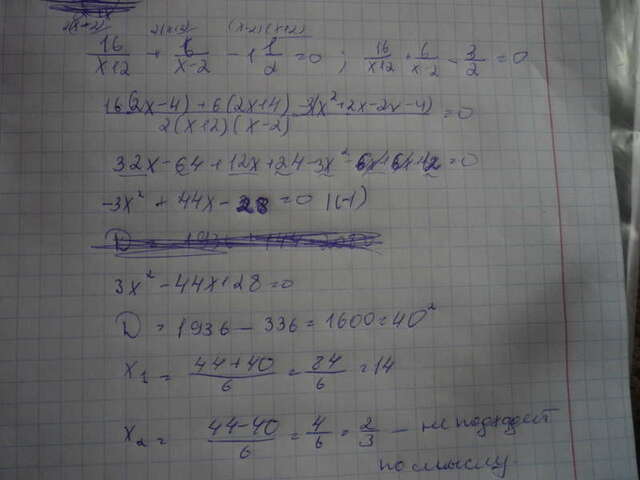 2(x-2) (x-2)(x+2)
16/(x+2) + 6/(x-2) - 1 1/2 = 0 ; 16/(x+2) + 6/(x-2) - 3/2 = 0
(16(2x-4) + 6(2x+4) - 3(x²+2x-2x-4))/(2(x+2)(x-2)) = 0
32x - 64 + 12x + 24 - 3x² - 6x + 6x + 12 = 0
-3x² + 44x - 28 = 0 |(-1)
3x² - 44x + 28 = 0
D = 1936 - 336 = 1600 = 40²
x₁ = (44+40)/6 = 84/6 = 14
x₂ = (44-40)/6 = 4/6 = 2/3 — не подходит
по смыслу